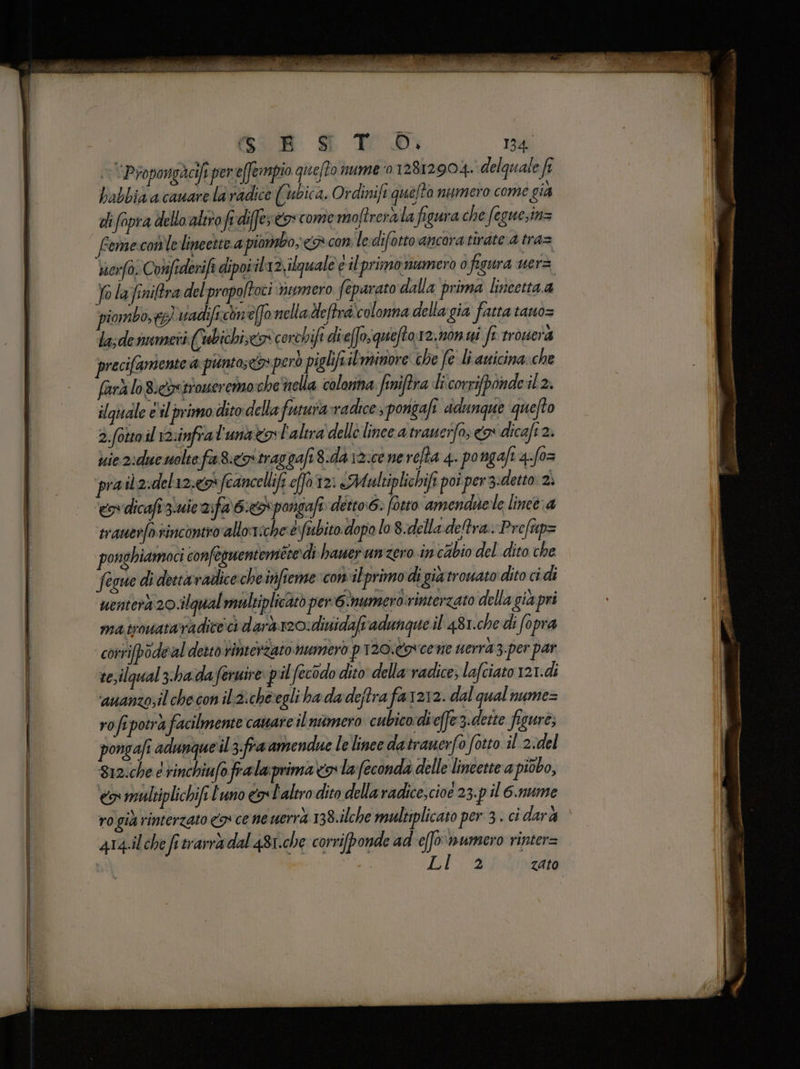 S E S T O. 134
Propongàcisi per essempio questo nume‍ro 12812904. delquale si
habbia a cauare la radice Cubica. Ordinisi questo numero come già
di sopra dello altro si disse, & come mostrerà la figura che segue, in=
seme con le lineette a piombo, & con le disotto ancora tirate a tra=
uerso. Considerisi dipoi il 12, ilquale è il primo numero o figura uer=
so la sinistra del propostoci numero separato dalla prima lineetta a
piombo, & uadisi con esso nella destra colonna della gia fatta tauo=
la, de numeri Cubichi, & cerchisi di esso, questo 12. non ui si trouerà
precisamente a punto, & però piglisi il minore che se li auicina: che
sarà lo 8. & troueremo che nella colonna sinistra li corrisponde il 2.
ilquale è il primo dito della futura radice, pongasi adunque questo
2. sotto il 12. infra l'una & l'altra delle linee a trauerso, & dicasi 2.
uie 2: due uolte fa 8. & traggasi 8. da 12. ce ne resta 4. pongasi 4. so=
pra il 2. del 12. & scancellisi esso 12: Multiplichisi poi per 3. detto 2.
& dicasi 3. uie 2. fa 6. & pongasi detto 6. sotto amendue le linee a
trauerso rincontro allo 1. che è subito dopo lo 8. della destra. Presup=
ponghiamoci conseguentemēte di hauer un zero in cābio del dito che
segue di detta radice che insieme con il primo di già trouato dito ci di
uenterà 20. ilqual multiplicato per 6. numero rinterzato della già pri
ma trouata radice ci darà 120: diuidasi adunque il 481. che di sopra
corrispōde al detto rinterzato numero p 120. & ce ne uerrà 3. per par
te, ilqual 3. ha da seruire p il secōdo dito della radice, lasciato 121. di
auanzo, il che con il 2. che egli ha da destra fa 1212. dal qual nume=
ro si potrà facilmente cauare il numero cubico di esse 3. dette figure,
pongasi adunque il 3. fra amendue le linee da trauerso sotto il 2. del
812. che è rinchiuso fra la prima & la seconda delle lineette a piōbo,
& multiplichisi l'uno & l'altro dito della radice, cioè 23. p il 6. nume
ro già rinterzato & ce ne uerrà 138. ilche multiplicato per 3. ci darà
414. il che si trarrà dal 481. che corrisponde ad esso numero rinter=
Ll 2 zato